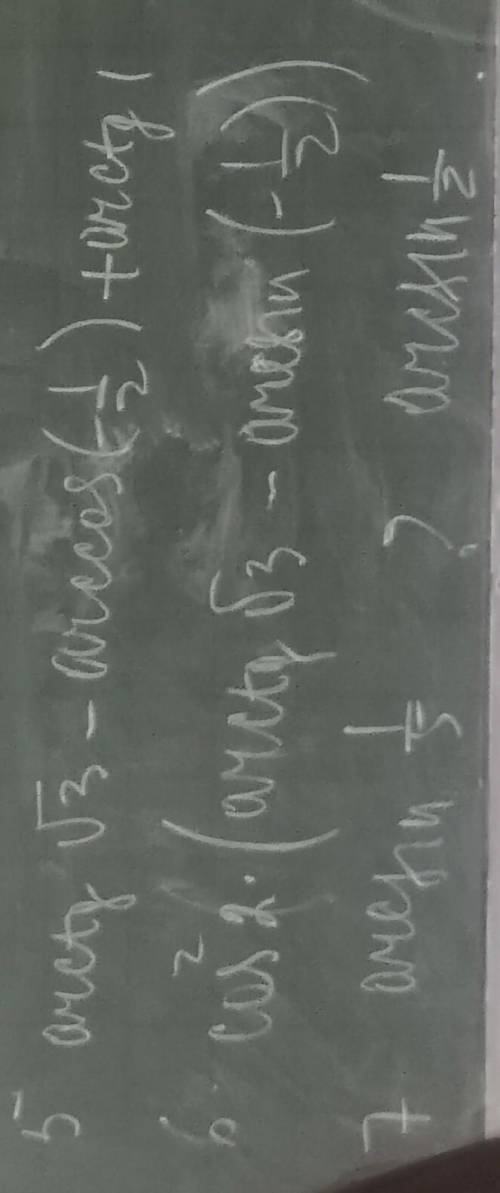 5 arctg √3 - arccos (-1/2) + arctg 1
6. cos² 2·(arctg √3 - arcsin (-1/2))
7 arcsin 1/3 ? arcsin 1/2